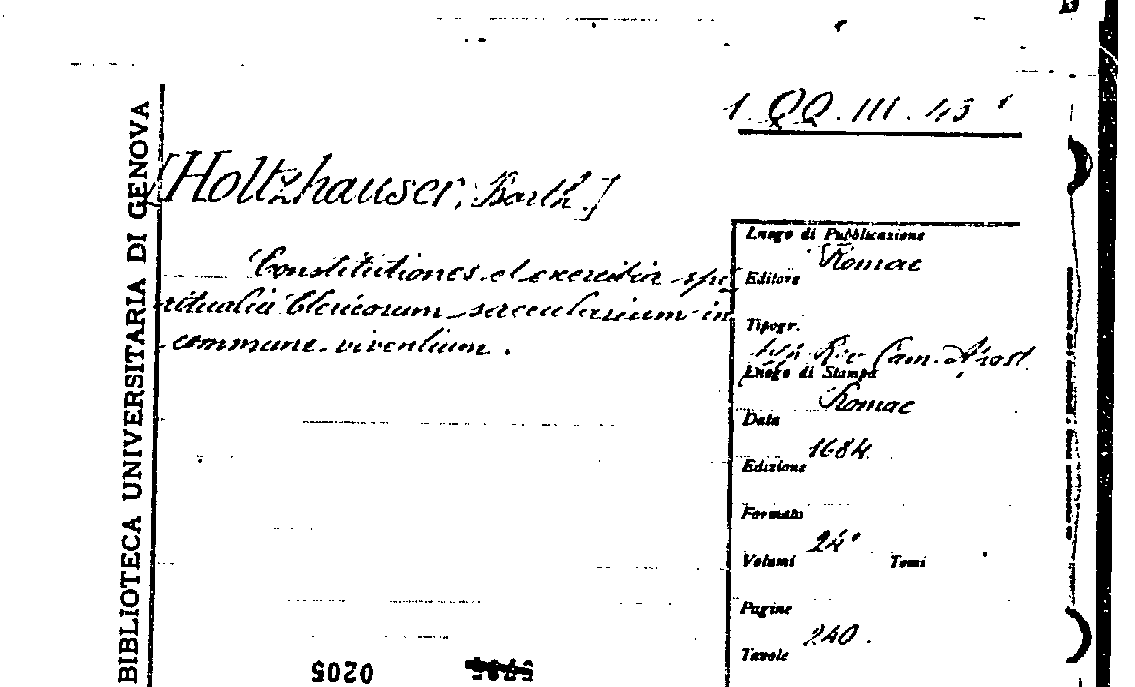 1. QQ. III. 43
BIBLIOTECA UNIVERSITARIA DI GENOVA
[Holtzhauser, Barth.]
Constitutiones et exercitia spi
ritualia Clericorum saecularium in
commune viventium.
Luogo di Pubblicazione
Romae
Editore
Tipogr.
Cam. Apost.
Luogo di Stampa
Romae
Data
1684
Edizione
Formato
24°
Volumi Tomi
Pagine
240.
Tavole
0205